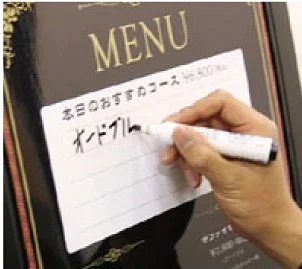 MENU
本日のおすすめコース ¥6,800
オードブル